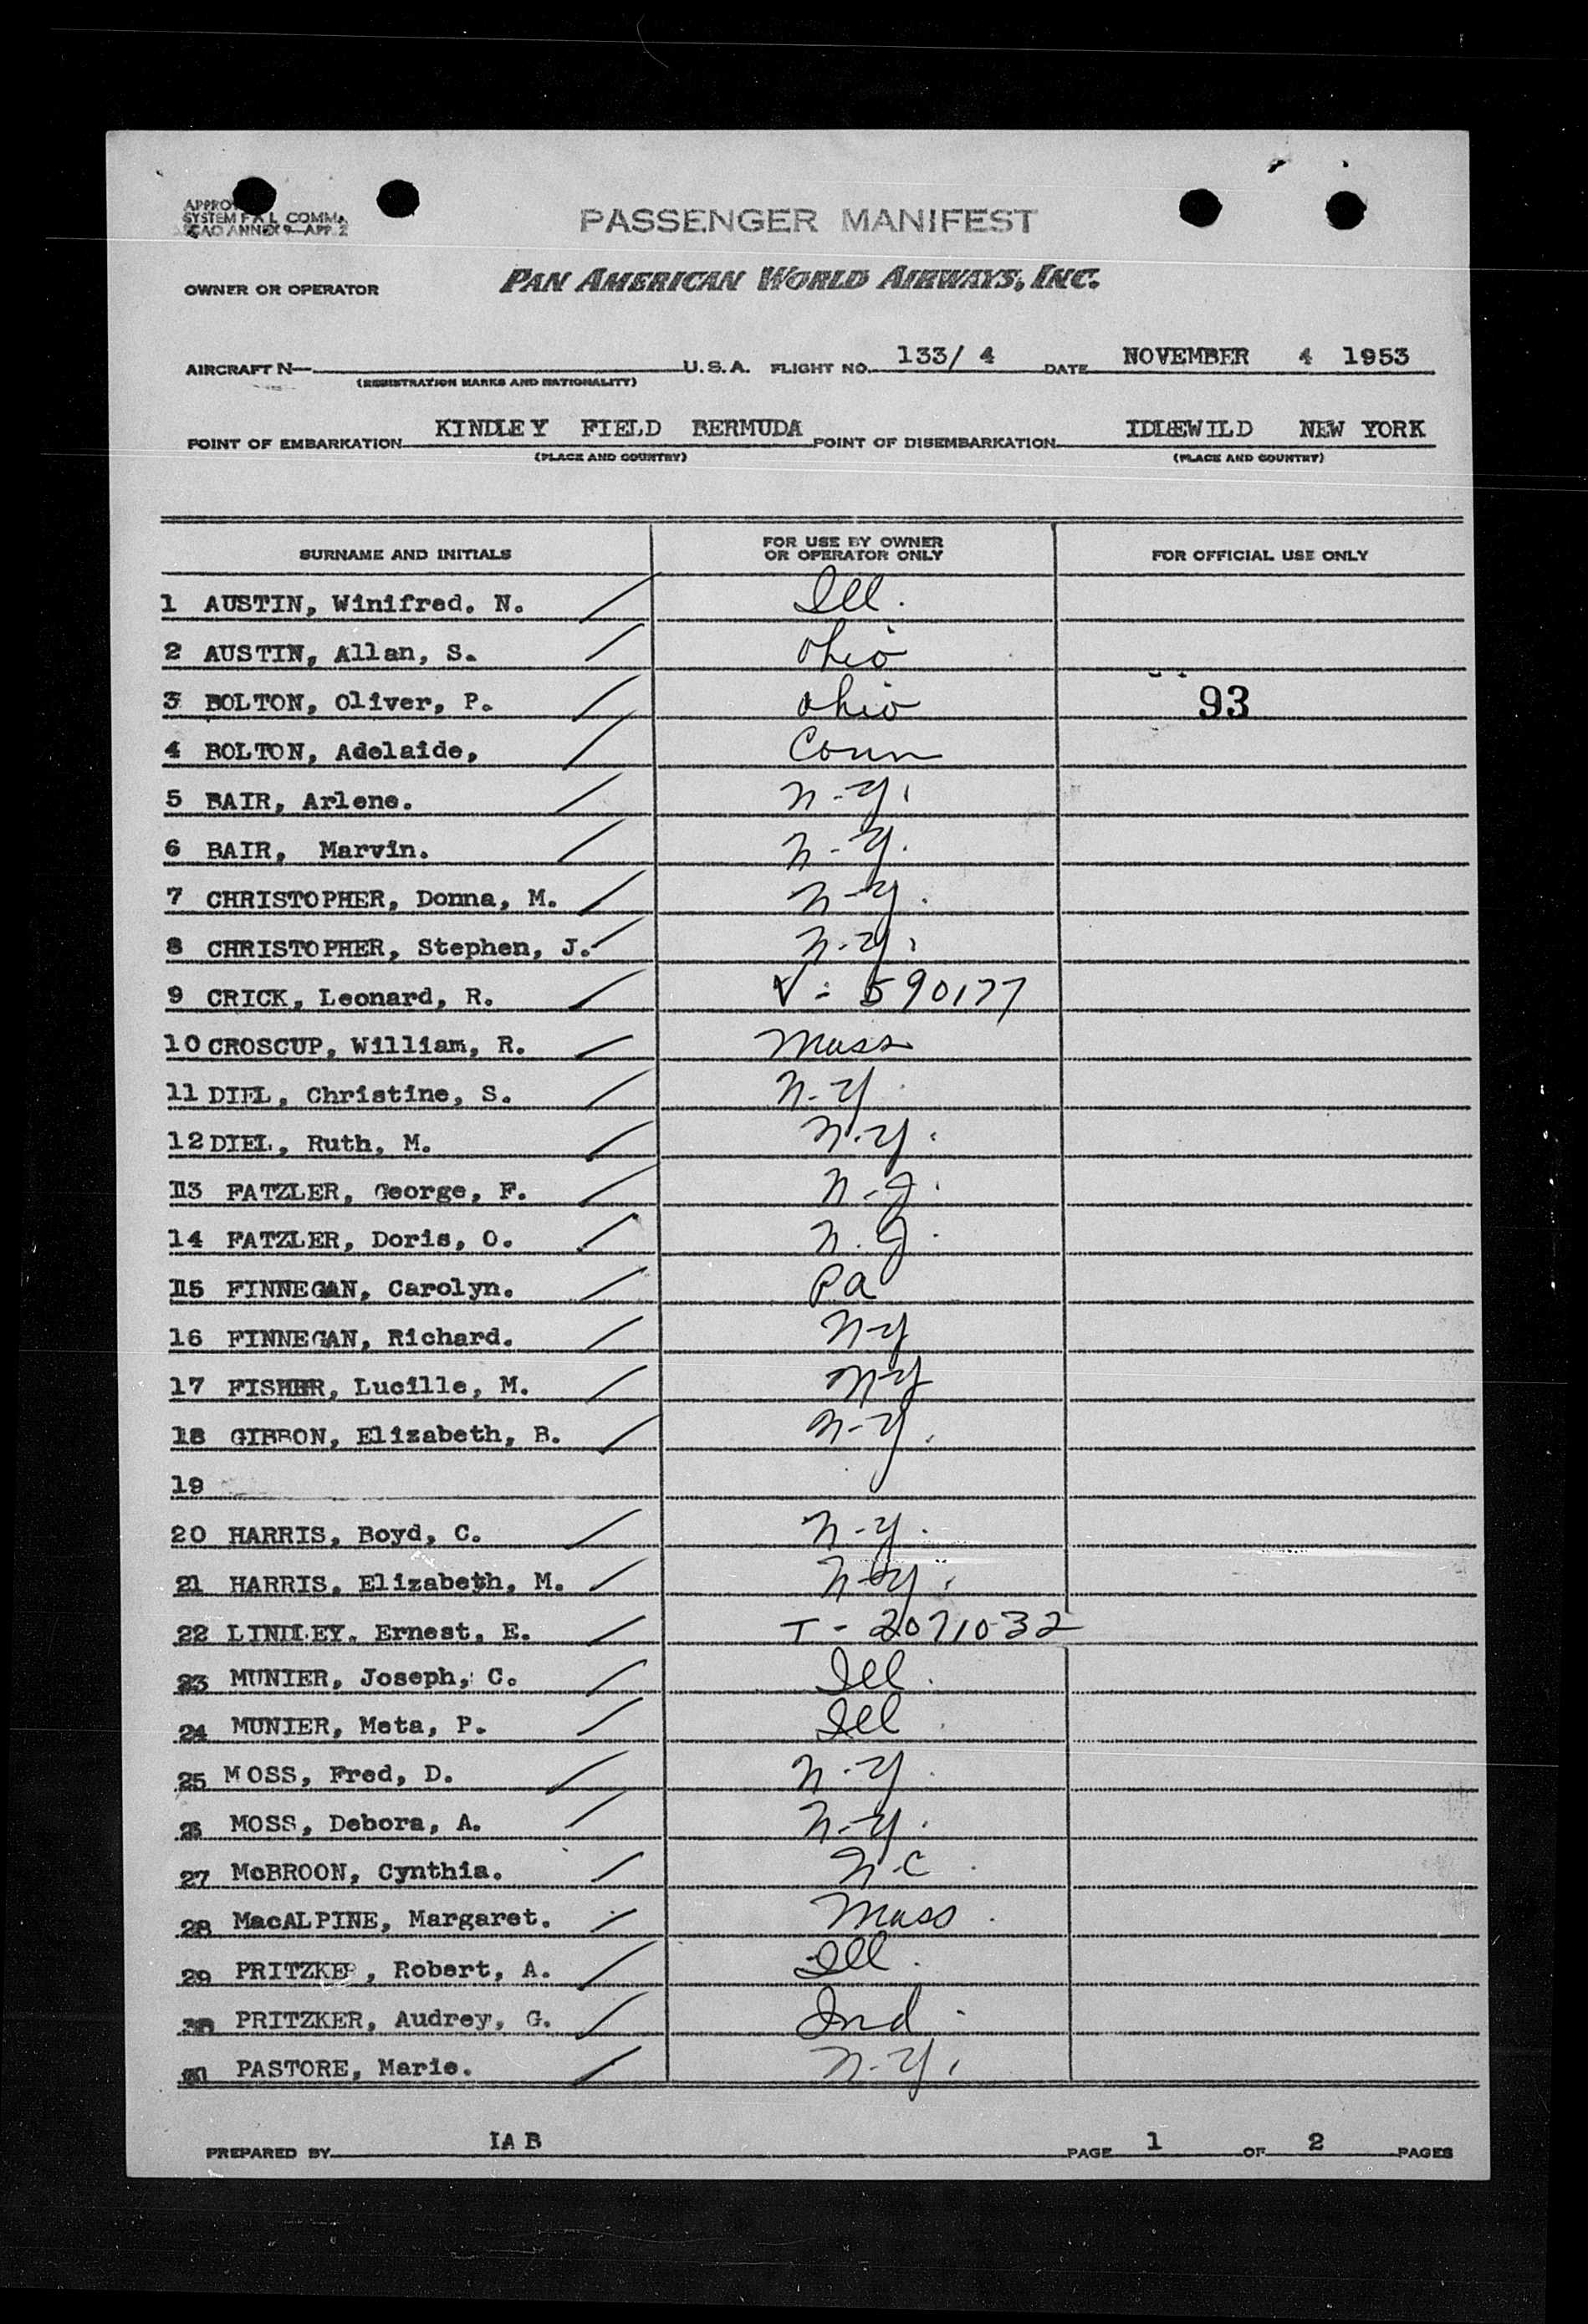 PASSENGER MANIFEST
SYSTEM F A L COMM.
ICAO ANNEX 9—APP. 2
OWNER OR OPERATOR PAN AMERICAN WORLD AIRWAYS, INC.
AIRCRAFT N— U.S.A. FLIGHT NO. 133/ 4 DATE NOVEMBER 4 1953
(REGISTRATION MARKS AND NATIONALITY)
POINT OF EMBARKATION KINDLEY FIELD BERMUDA POINT OF DISEMBARKATION IDLEWILD NEW YORK
(PLACE AND COUNTRY) (PLACE AND COUNTRY)
SURNAME AND INITIALS FOR USE BY OWNER OR OPERATOR ONLY FOR OFFICIAL USE ONLY
1 AUSTIN, Winifred. N. Ill.
2 AUSTIN, Allan, S. Ohio
3 BOLTON, Oliver, P. Ohio 93
4 BOLTON, Adelaide, Conn
5 BAIR, Arlene. N-Y.
6 BAIR, Marvin. N-Y.
7 CHRISTOPHER, Donna, M. N-Y.
8 CHRISTOPHER, Stephen, J. N-Y.
9 CRICK, Leonard, R. V- 590177
10 CROSCUP, William, R. Mass
11 DIEL, Christine, S. N-Y.
12 DIEL, Ruth, M. N.Y.
13 FATZLER, George, F. N-J.
14 FATZLER, Doris, O. N.J.
15 FINNEGAN, Carolyn. Pa
16 FINNEGAN, Richard. N-Y
17 FISHER, Lucille, M. N-Y
18 GIBBON, Elizabeth, B. N-Y.
19
20 HARRIS, Boyd, C. N-Y.
21 HARRIS, Elizabeth, M. N-Y.
22 LINDLEY, Ernest, E. T- 2071032
23 MUNIER, Joseph, C. Ill.
24 MUNIER, Meta, P. Ill.
25 MOSS, Fred, D. N-Y.
26 MOSS, Debora, A. N-Y.
27 McBROON, Cynthia. N-C.
28 MacALPINE, Margaret. Mass.
29 PRITZKER, Robert, A. Ill.
30 PRITZKER, Audrey, G. Ind.
31 PASTORE, Marie. N-Y.
PREPARED BY IAB PAGE 1 OF 2 PAGES